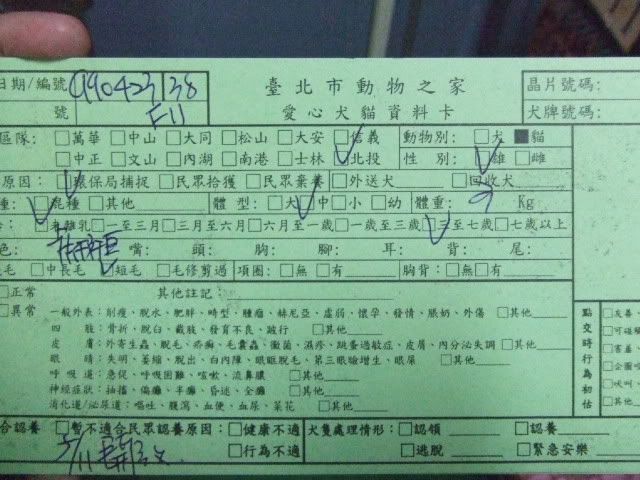 日期/編號 990423 138 臺北市動物之家 晶片號碼:
號 F11 愛心犬貓資料卡 犬牌號碼:
區隊: □萬華 □中山 □大同 □松山 □大安 □信義 動物別: □犬 ■貓
□中正 □文山 □內湖 □南港 □士林 □北投 性 別: □雄 □雌
原因: □環保局捕捉 □民眾拾獲 □民眾棄養 □外送犬 □回收犬
種: □混種 □其他 體 型: □大 □中 □小 □幼 體重: Kg
□未離乳 □一至三月 □三至六月 □六月至一歲 □一歲至三歲 □三至七歲 □七歲以上
色: 嘴: 頭: 胸: 腳: 耳: 背: 尾:
長毛 □中長毛 □短毛 □毛修剪過 項圈: □無 □有 胸背: □無 □有
□正常 其他註記:
□異常 一般外表: 削瘦、脫水、肥胖、畸型、腫瘤、赫尼亞、虛弱、懷孕、發情、脹奶、外傷 □其他
四 肢: 骨折、脫臼、截肢、發育不良、跛行 □其他
皮 膚: 外寄生蟲、脫毛、疥癬、毛囊蟲、黴菌、濕疹、跳蚤過敏症、皮屑、內分泌失調 □其他
眼 睛: 失明、萎縮、脫出、白內障、眼眶脫毛、第三眼瞼增生、眼屎 □其他
呼 吸 道: 急促、呼吸困難、咳嗽、流鼻膿 □其他
神經症狀: 抽搐、偏癱、半癱、昏迷、全癱 □其他
消化道/泌尿道: 嘔吐、腹瀉、血便、血尿、菜花 □其他
點交時行為初估
□友善
□可碰觸
□害羞
□企圖
□吠叫
□其他
合認養 □暫不適合民眾認養原因: □健康不適 犬隻處理情形: □認領 □認養
5/11 □行為不適 □逃脫 □緊急安樂